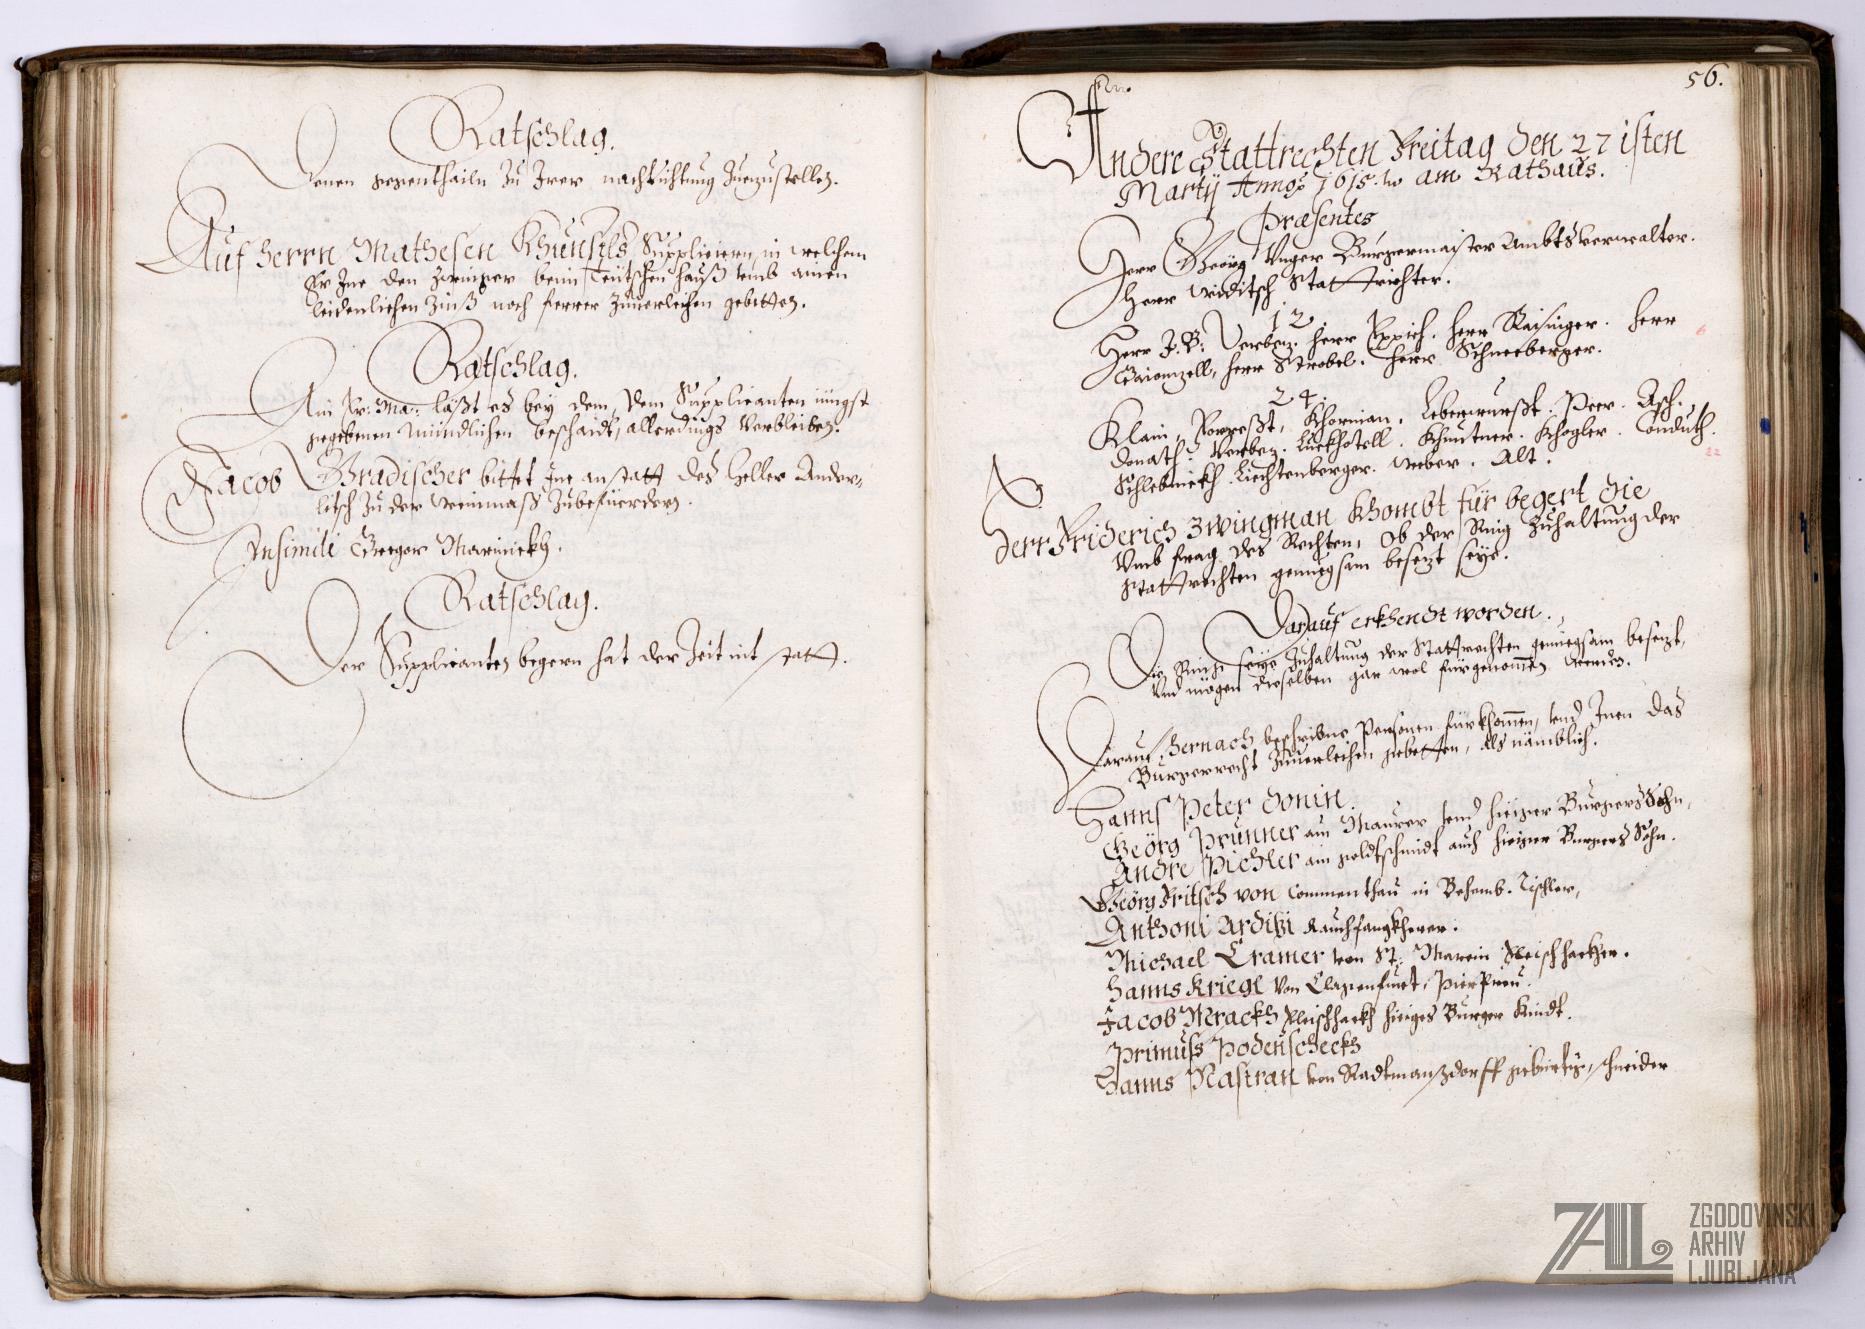 Ratschlag.
Denen gegenthailn zu Irer nachrichtung zuezustellen.
Auf herrn Mathesen Khunstls Suppliciern, in welchem
Er Ime den Zwinger beim Teutschen hauß umb ainen
leidenlichen Zinß noch ferrer zuuerleihen gebetten.
Ratschlag.
Ain Er: Ma: läßt es bey dem, dem Supplicanten iüngst
gegebenen mündlichen beschaidt, allerdings verbleiben.
Jacob Gradischer bittet Ine anstatt des Heller Ander-
litsch zu der Weinmaß zubefüerdern.
In simili Gregor Marinickh.
Ratschlag.
Der Supplicanten begern hat der Zeit nit statt.
56.
Andere Stattrechten Freitag den 27 isten
Martij Anno 1615. am Rathaus.
Præsentes
Herr Georg Unger Burgermaister Ambtsverwalter.
Herr Widitsch Stattrichter.
12.
Herr J. B: Verbez. herr Eppich. herr Raisinger. herr
herr Strobel. herr Schneeberger.
24.
Klain, Khorman. Leberwurßt. Peer. Asch.
Donath. Verbez. Khogler.
Schlebnickh. Liechtenberger. Weber. Alt.
Herr Friderich Zwingman khombt für begert die
Umb frag des Rechten, ob der Ring zuhaltung der
Stattrechten genuegsam besezt seye.
Darauf erkhendt worden.
Die Ringe seye zuhaltung der Stattrechten genuegsam besezt,
und mögen dieselben gar wol fürgenommen werden.
Darauf hernach beschribne Personen fürkhommen, und Inen das
Burgerrecht zuuerleihen gebetten, als nämblich.
Hanns Peter Donin.
Georg Prunner ain Maurer und hieiger Burgers Sohn,
Andre Pichler ain goldtschmidt auch hieiger Burgers Sohn.
Georg Fritsch von Commenthau in Behemb. Tischler,
Anthoni Ardizi Rauchfangkherer.
Michael Cramer von St: Marein Fleischhackher.
Hanns Kriegl von Clagenfurt, Pierpreu.
Jacob Merackh Fleischhackh hieiges Burger Kindt.
Primuss Podenscheckh
Hanns Nastran von Radtmanßdorff gebürtig, schneider
ZAL
ZGODOVINSKI
ARHIV
LJUBLJANA